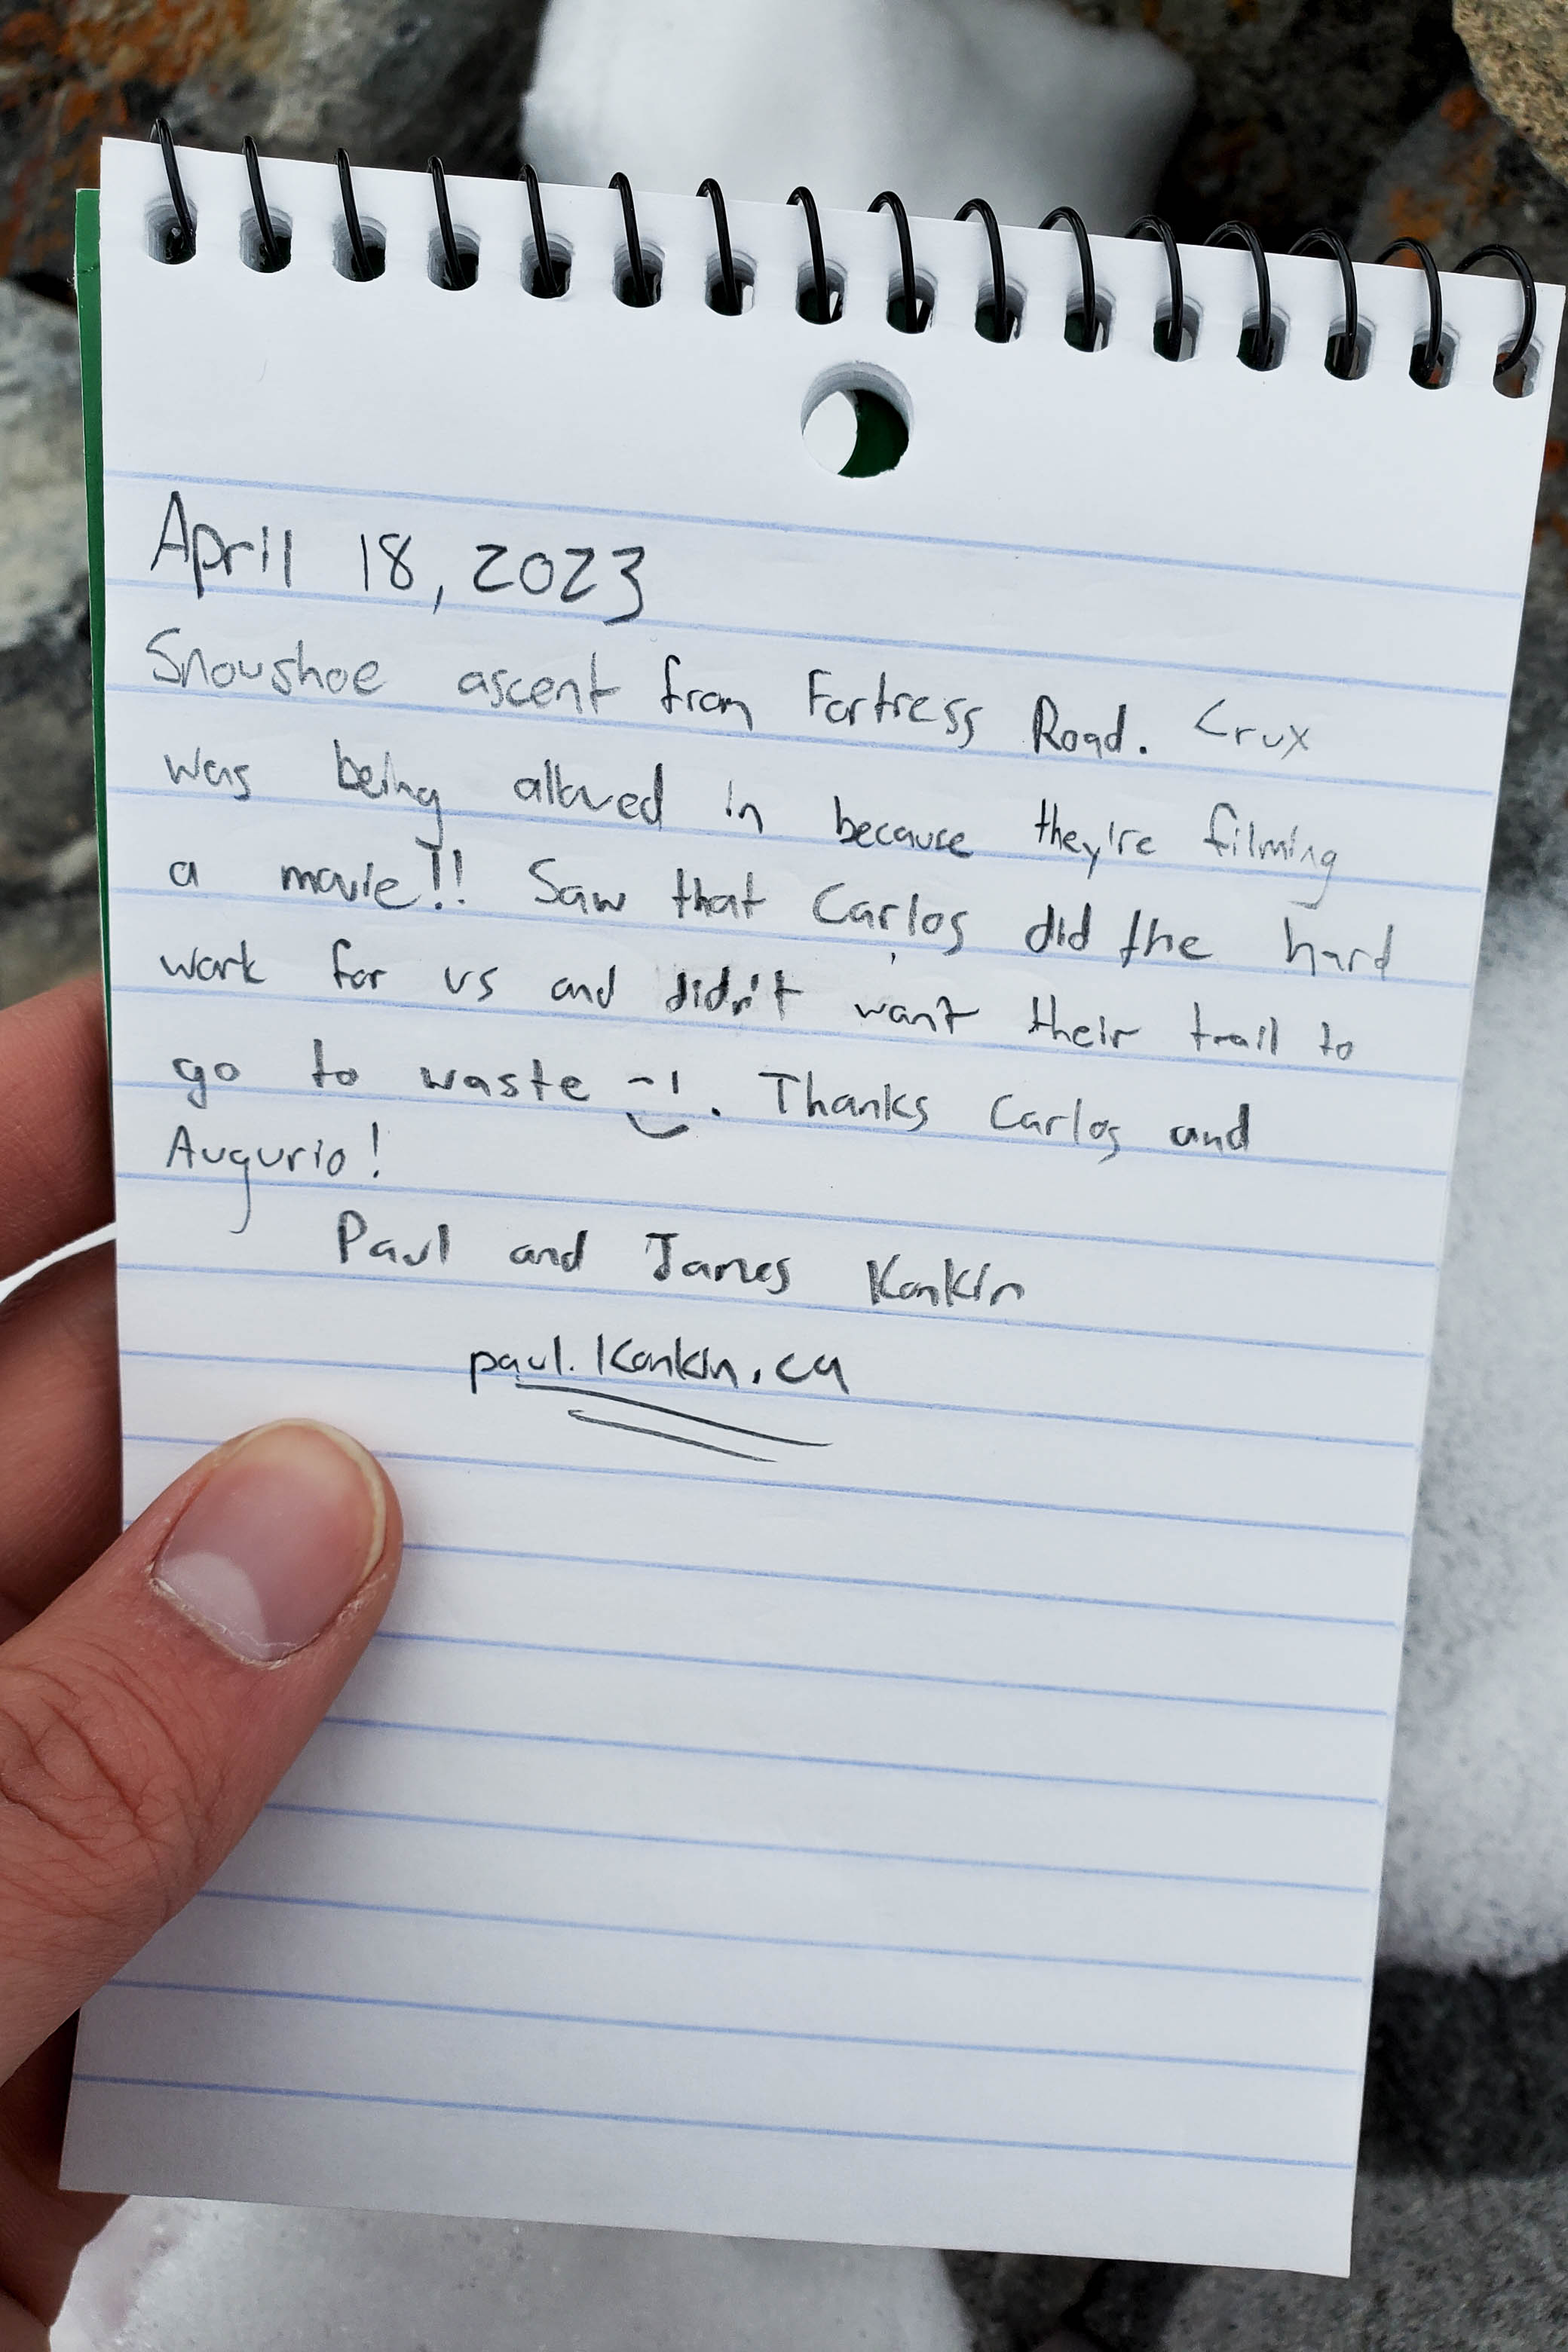 April 18, 2023
Snowshoe ascent from Fortress Road. Crux
was being allowed in because they're filming
a movie!! Saw that Carlos did the hard
work for us and didn't want their trail to
go to waste . Thanks Carlos and
Augurio!
Paul and James Konkin
paul.konkin.ca